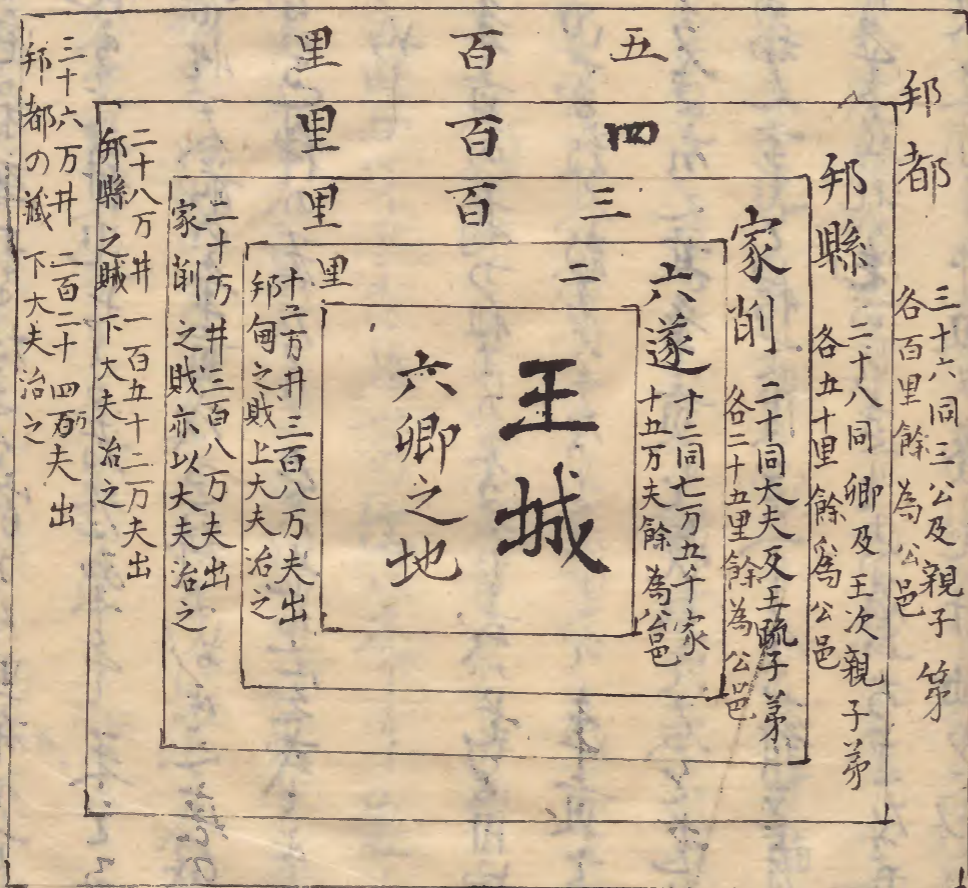 五百里
四百里
三百里
二
里
邦都
三十六同三公及親子第
各百里餘為公邑
邦縣
二十八同卿及王次親子弟
各五十里餘為公邑
家削
二十同大夫及王疏子弟
各二十五里餘為公邑
六遂
十二同七万五千家
十五万夫餘為公邑
王城
六卿之地
十二万井三百八万夫出
邦甸之賦上大夫治之
二十万井三百八万夫出
家削之賦亦以大夫治之
二十八万井一百五十二万夫出
邦縣之賦下大夫治之
三十六万井二百二十四万夫出
邦都の賦下大夫治之